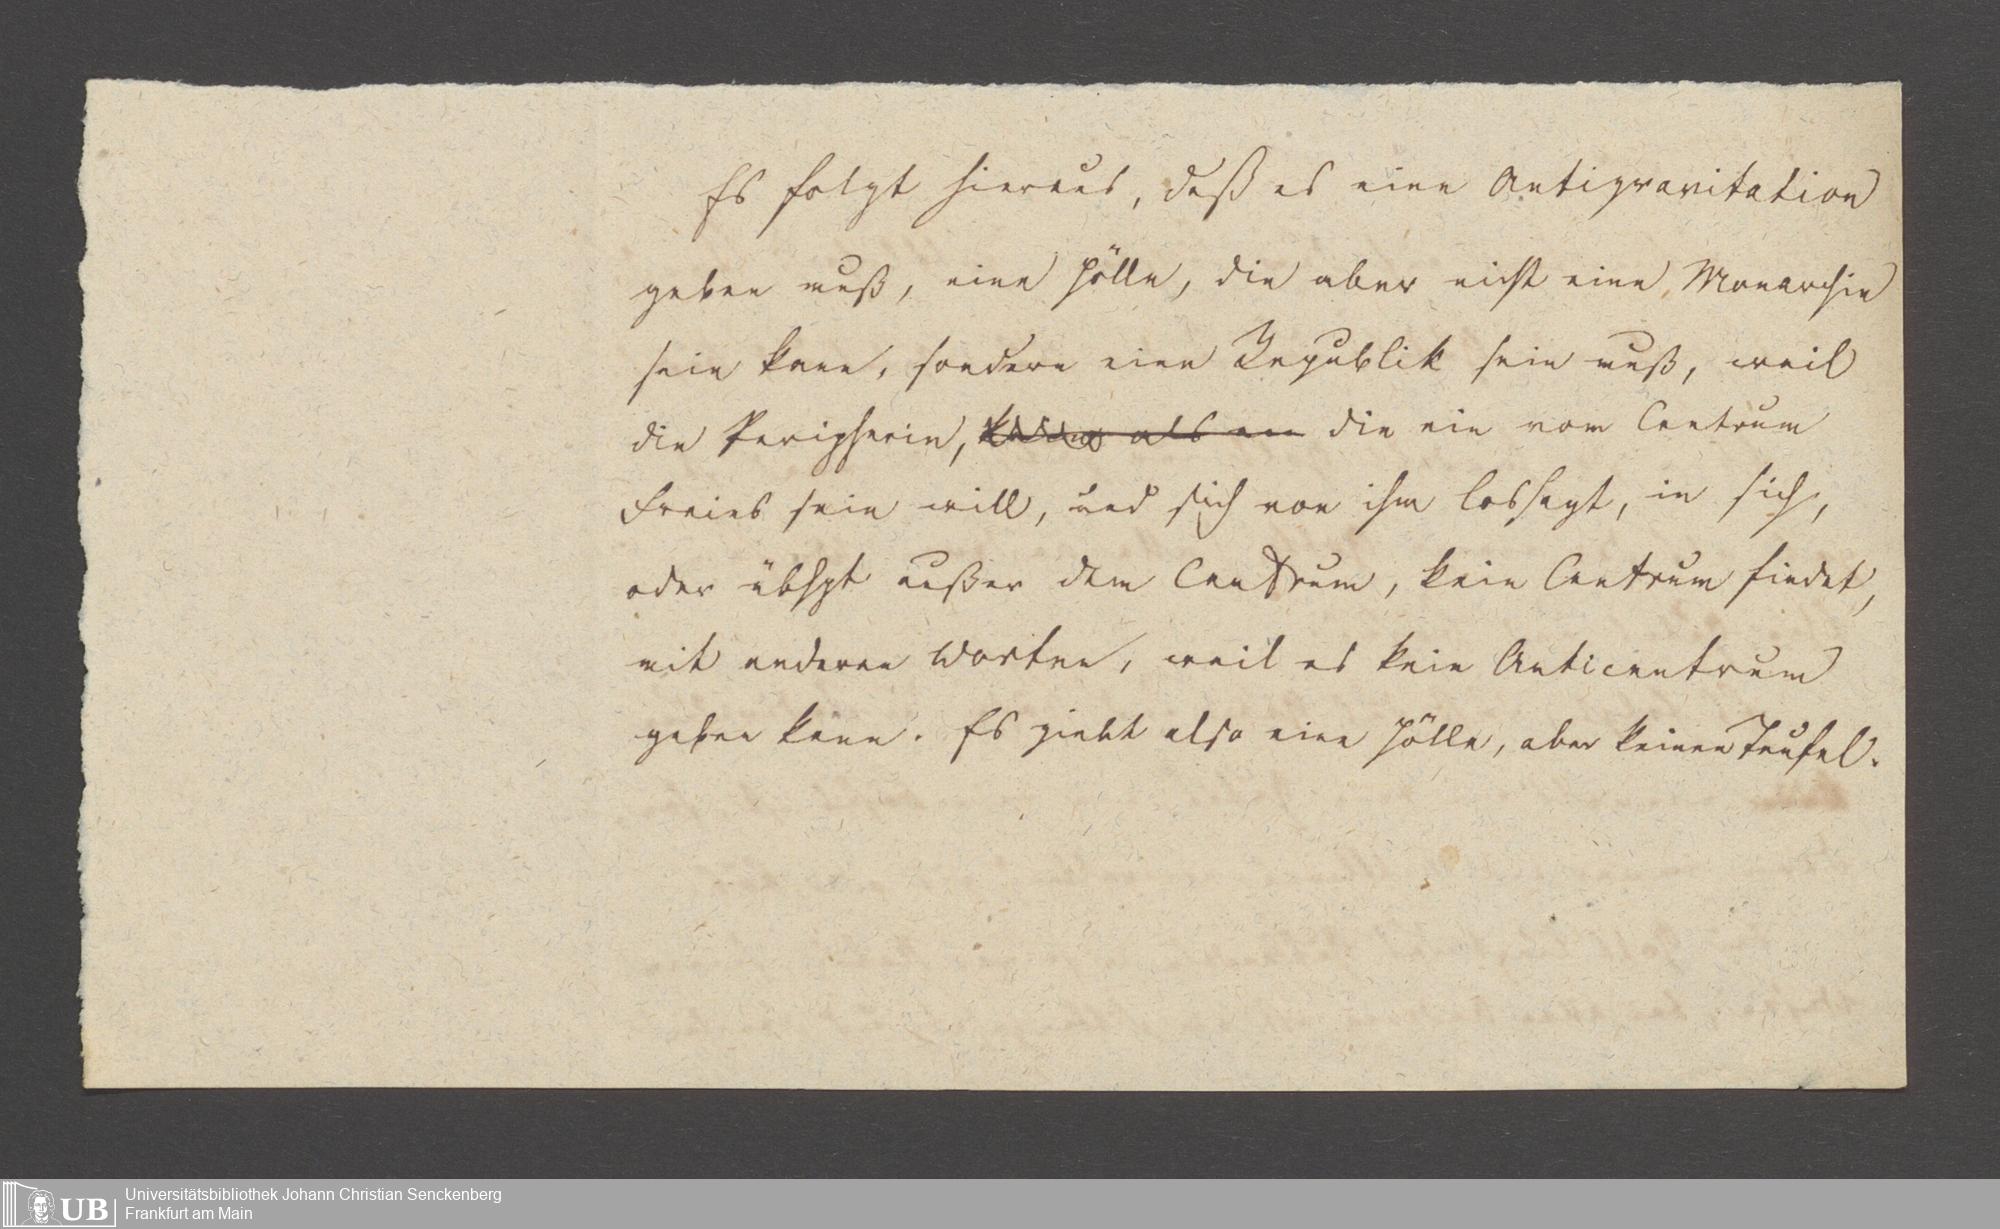 Es folgt hieraus, daß es eine Antigravitation
geben muß, eine Hölle, die aber nicht eine Monarchie
sein kann, sondern eine Republik sein muß, weil
die Peripherie, als die ein vom Centrum
Freies sein will, und sich von ihm lossagt, in sich,
oder übhpt außer dem Centrum, kein Centrum findet,
mit anderen Worten, weil es kein Anticentrum
geben kann. Es giebt also eine Hölle, aber keinen Teufel.
UB
Universitätsbibliothek Johann Christian Senckenberg
Frankfurt am Main